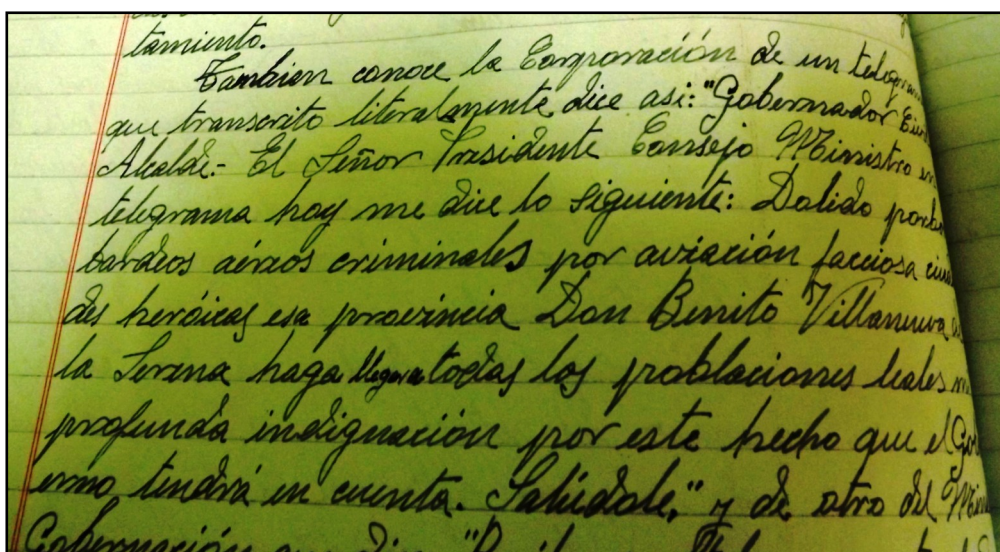 tamiento.
Tambien conoce la Corporación de un telegram
que transcrito literalmente dice asi: "Gobernador Civi
Alcalde.- El Señor Presidente Consejo Ministro en
telegrama hoy me dice lo siguiente: Dolido por bom
bardeos aéreos criminales por aviación facciosa ciuda
des heróicas esa provincia Don Benito Villanueva de
la Serena haga llegar a todas las poblaciones leales mi
profunda indignación por este hecho que el Gobi
erno tendrá en cuenta. Salúdale," y de otro del Mini
Gobernación que dice